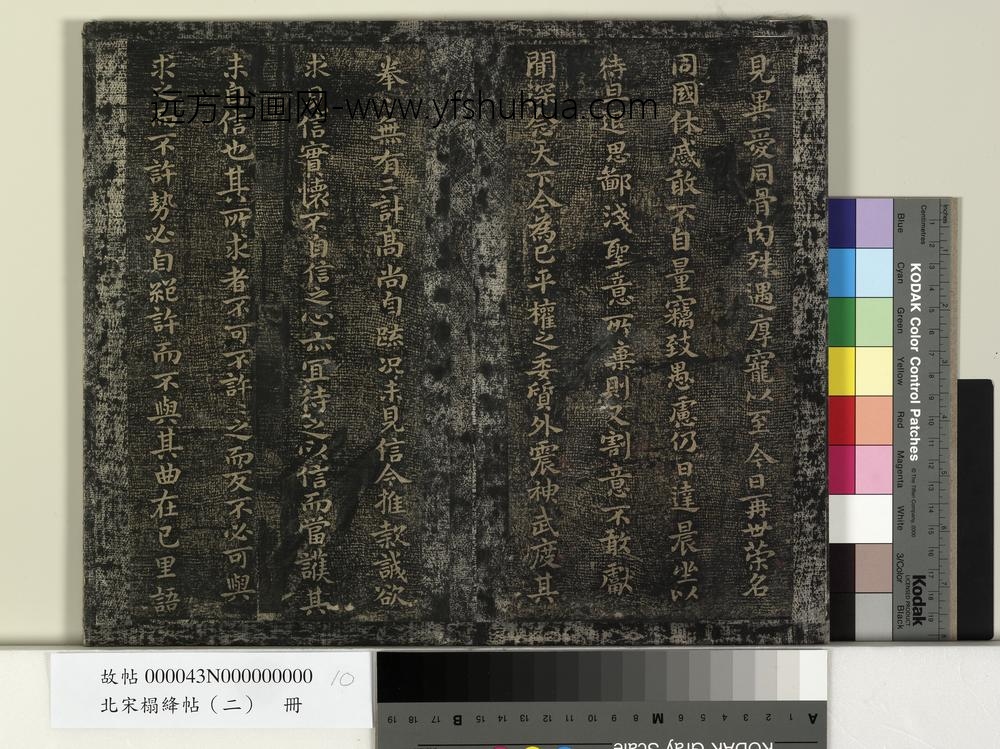 見異愛同骨肉殊遇厚寵以至今日再世榮名
同國休慼敢不自量竊致愚慮仍日達晨坐以
待旦退思鄙淺聖意所棄則又割意不敢獻
聞深念天下今為已平權之委質外震神武度其
拳拳無有二計高尚自疎況未見信今推款誠欲
求見信實懷不自信之心亦宜待之以信而當護其
未自信也其所求者不可不許之而反不必可與
求之而不許勢必自絕許而不與其曲在己里語
远方书画网-www.yfshuhua.com
故帖 000043N000000000 10
北宋榻絳帖（二） 冊
KODAK Color Control Patches
© The Tiffen Company, 2000
Kodak
LICENSED PRODUCT
Blue
Cyan
Green
Yellow
Red
Magenta
White
3/Color
Black
Inches
Centimetres
KODAK Gray Scale
A 1 2 3 4 5 6 M 8 9 10 11 12 13 14 15 B 17 18 19